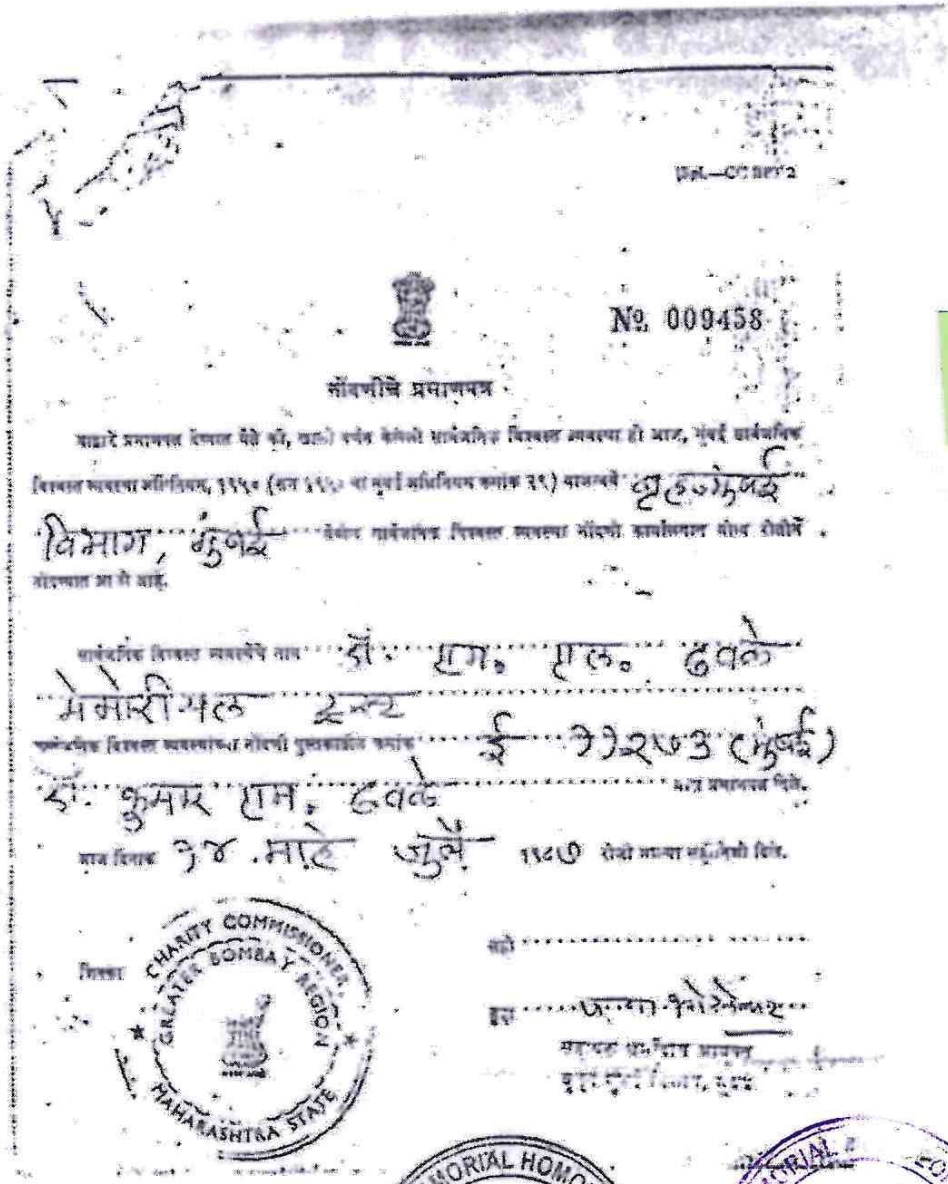 No 009458
नोंदणीचे प्रमाणपत्र
याद्वारे प्रमाणपत्र देण्यात येते की, खाली वर्णन केलेली सार्वजनिक विश्वस्त व्यवस्था ही आज, मुंबई सार्वजनिक
विश्वस्त व्यवस्था अधिनियम, १९५० (सन १९५० चा मुंबई अधिनियम क्रमांक २९) याअन्वये बृहन्मुंबई
विभाग, मुंबई येथील सार्वजनिक विश्वस्त व्यवस्था नोंदणी कार्यालयात योग्य रीतीने
नोंदण्यात आली आहे.
सार्वजनिक विश्वस्त व्यवस्थेचे नाव डॉ. एम. एल. ढवळे
मेमोरीयल ट्रस्ट
सार्वजनिक विश्वस्त व्यवस्थांच्या नोंदणी पुस्तकातील क्रमांक ई ११२७३ (मुंबई)
डॉ. कुमार एम. ढवळे यांना प्रमाणपत्र दिले.
आज दिनांक १४ माहे जुलै १९८७ रोजी माझ्या सहीनिशी दिले.
शिक्का
CHARITY COMMISSIONER
GREATER BOMBAY REGION
MAHARASHTRA STATE
सही
हुद्दा
MORIAL HOMO
MORIAL